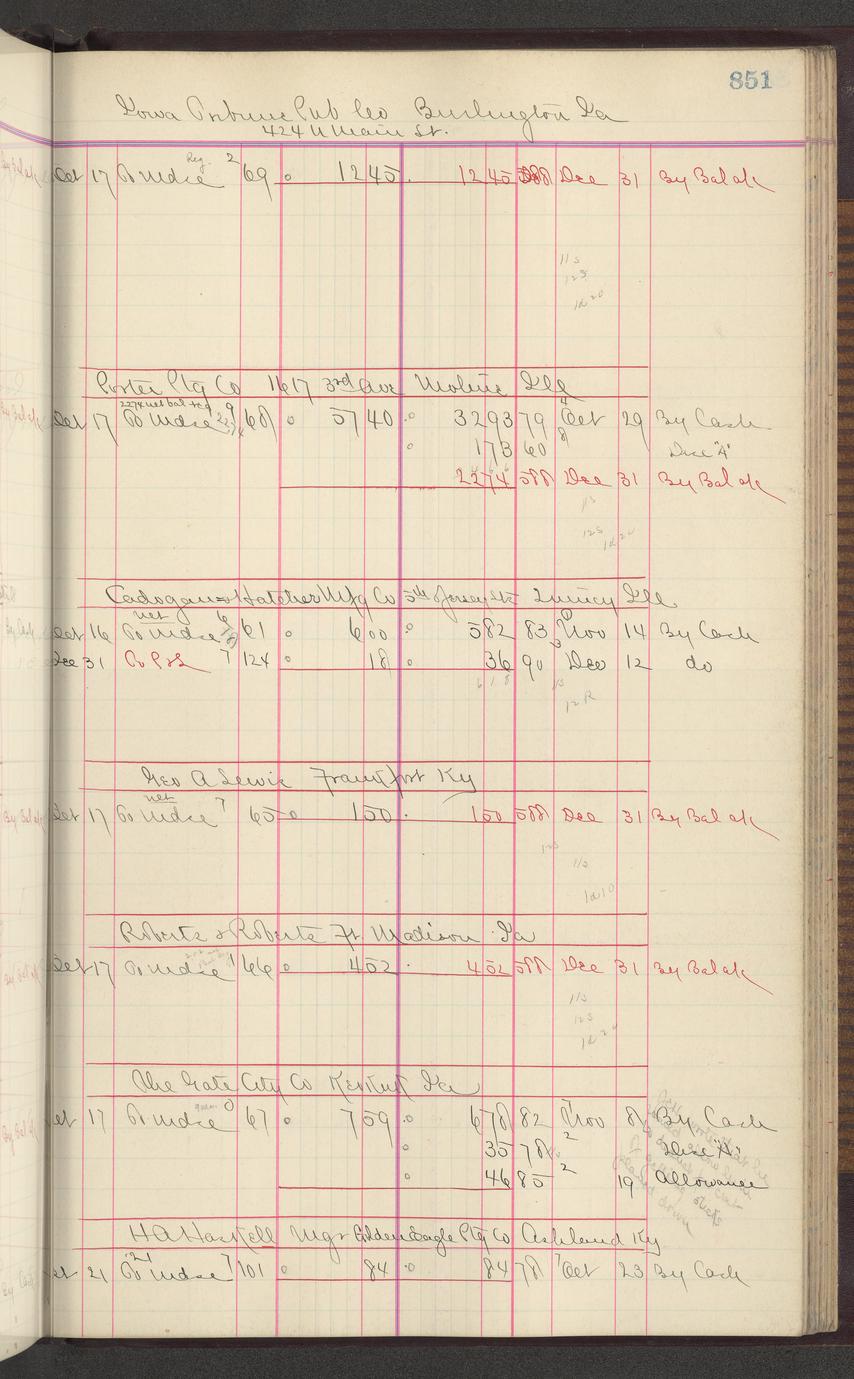 851
Iowa Tribune Pub Co Burlington Ia
424 N Main St.
Oct 17 To Mdse Reg. 2 69 1245 1245 588 Dec 31 By Bal ok
11 S
12 S
Porter Ptg Co 1617 3rd Ave Moline Ill
2274 net bal
Oct 17 To Mdse 9 68 5740 3293 79 Oct 29 By Cash
173 60 8 Disc "A"
2274 588 Dec 31 By Bal ok
Cadogan & Hatcher Mfg Co 5th & Jersey Sts Quincy Ill
net
Oct 16 To Mdse 61 600 582 83 Nov 14 By Cash
Dec 31 To P&L 7 124 18 36 90 Dec 12 do
618
12 R
Geo A Lewis Frankfort Ky
net
Oct 17 To Mdse 7 65 150 150 588 Dec 31 By Bal ok
12 S
11 S
Roberts & Roberts Ft Madison Ia
Oct 17 To Mdse 1 66 452 452 588 Dec 31 By Bal ok
11 S
12 S
The Gate City Co Keokuk Ia
Oct 17 To Mdse 0 67 759 678 82 7 Nov 8 By Cash
35 78 2 Disc "A"
46 85 2 19 Allowance
H A Haskell Mgr Golden Eagle Ptg Co Ashland Ky
Oct 21 To Mdse 7 101 84 84 78 7 Oct 23 By Cash